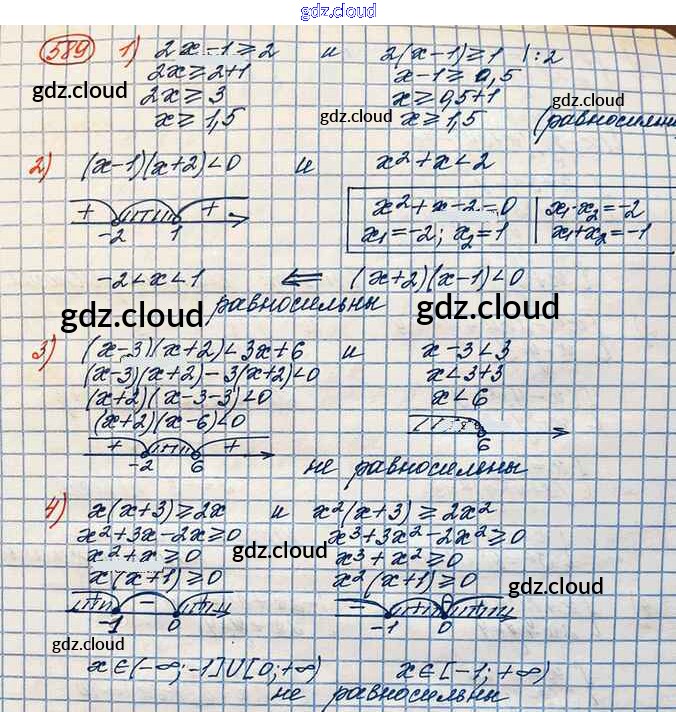 gdz.cloud
589 1) 2x-1≥2 и 2(x-1)≥1 |:2
2x≥2+1 x-1≥0,5
2x≥3 x≥0,5+1
x≥1,5 x≥1,5 (равносильны
gdz.cloud gdz.cloud gdz.cloud
2) (x-1)(x+2)<0 и x²+x<2
+ + x²+x-2=0 x₁·x₂=-2
-2 1 x₁=-2; x₂=1 x₁+x₂=-1
-2<x<1 ⇐ (x+2)(x-1)<0
равносильны
gdz.cloud gdz.cloud
3) (x-3)(x+2)<3x+6 и x-3<3
(x-3)(x+2)-3(x+2)<0 x<3+3
(x+2)(x-3-3)<0 x<6
(x+2)(x-6)<0
+ +
-2 6 6
не равносильны
4) x(x+3)≥2x и x²(x+3)≥2x²
x²+3x-2x≥0 x³+3x²-2x²≥0
x²+x≥0 gdz.cloud x³+x²≥0
x(x+1)≥0 x²(x+1)≥0 gdz.cloud
+ - + - + +
-1 0 -1 0
gdz.cloud
x∈(-∞;-1]U[0;+∞) x∈[-1;+∞)
не равносильны